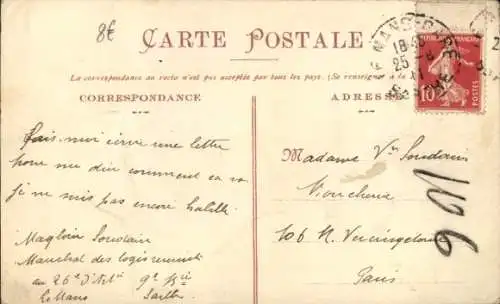 8€
CARTE POSTALE
La correspondance au recto n'est pas acceptée par tous les pays. (Se renseigner à la
CORRESPONDANCE
ADRESSE
RÉPUBLIQUE FRANÇAISE
10
POSTES
18
25
Fais-moi écrire une lettre
pour me dire comment ça va
je ne suis pas encore habillé
Magloire Soudain
Marechal des logis
au 26e d'Art
9e Bie
Le Mans Sarthe
Madame Vve Soudain
106 R. Vercingetorix
Paris